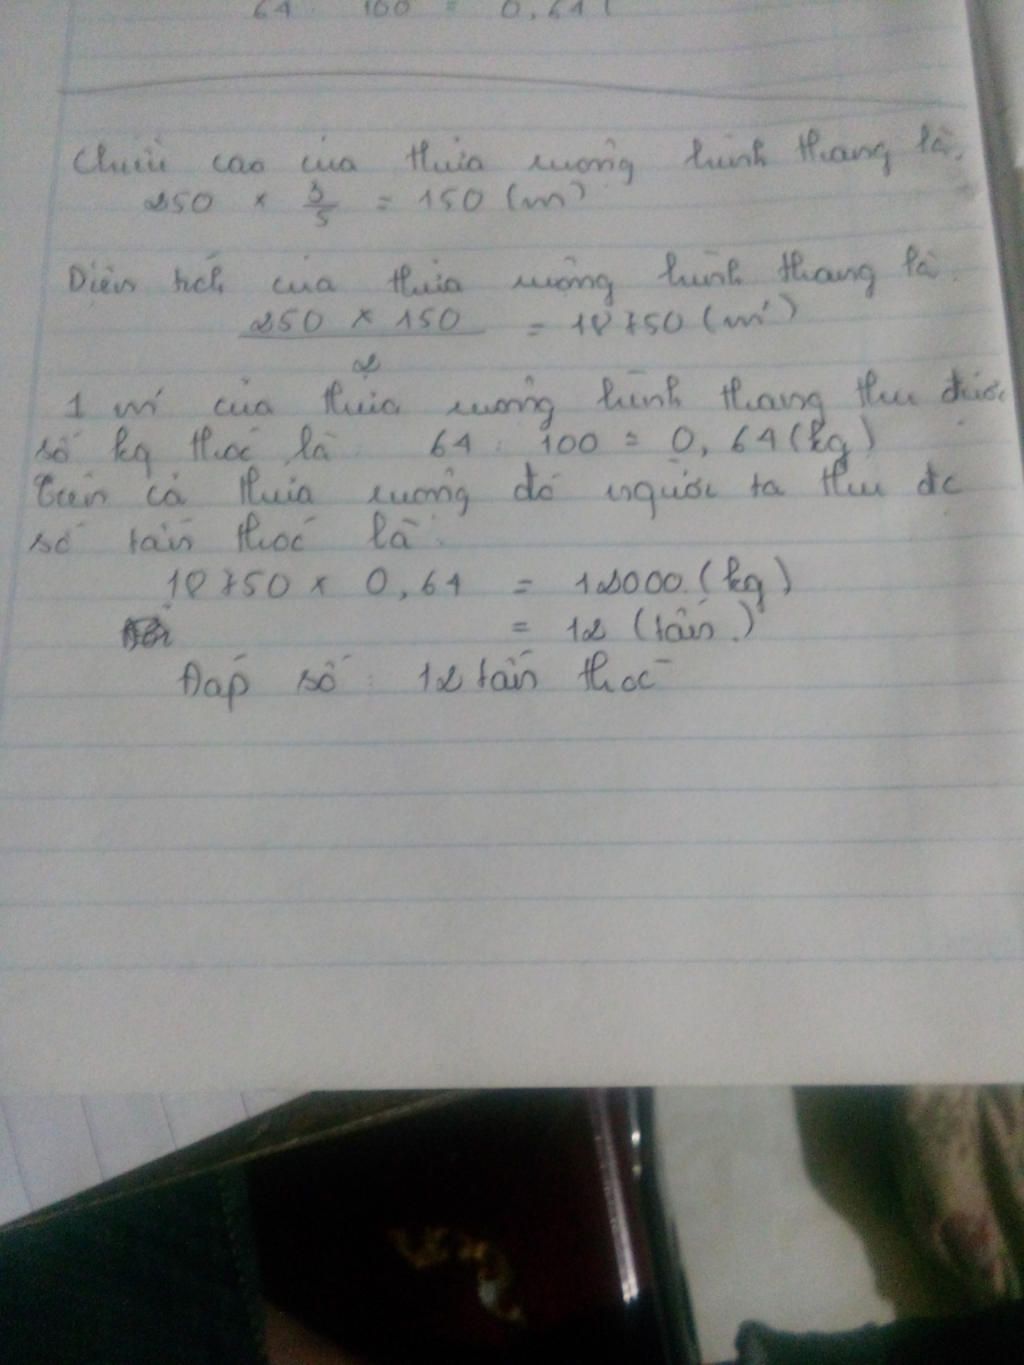 64 100 = 0,64 (
Chiều cao của thửa ruộng hình thang là:
250 × 3/5 = 150 (m)
Diện tích của thửa ruộng hình thang là:
250 × 150 / 2 = 18750 (m²)
1 m² của thửa ruộng hình thang thu được
số kg thóc là: 64 : 100 = 0,64 (kg)
Trên cả thửa ruộng đó người ta thu đc
số tấn thóc là:
18750 × 0,64 = 12000 (kg)
= 12 (tấn)
Đáp số: 12 tấn thóc